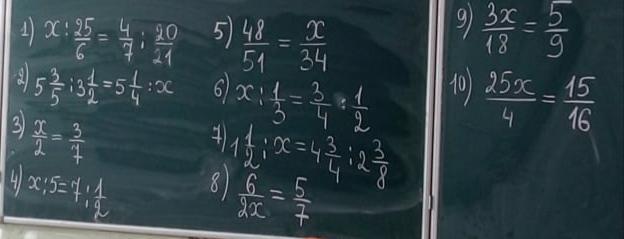 1) x : 25/6 = 4/7 : 20/21
2) 5 3/5 : 3 1/2 = 5 1/4 : x
3) x/2 = 3/7
4) x : 5 = 7 : 1/2
5) 48/51 = x/34
6) x : 1/3 = 3/4 : 1/2
7) 1 1/2 : x = 4 3/4 : 2 3/8
8) 6/2x = 5/7
9) 3x/18 = 5/9
10) 25x/4 = 15/16